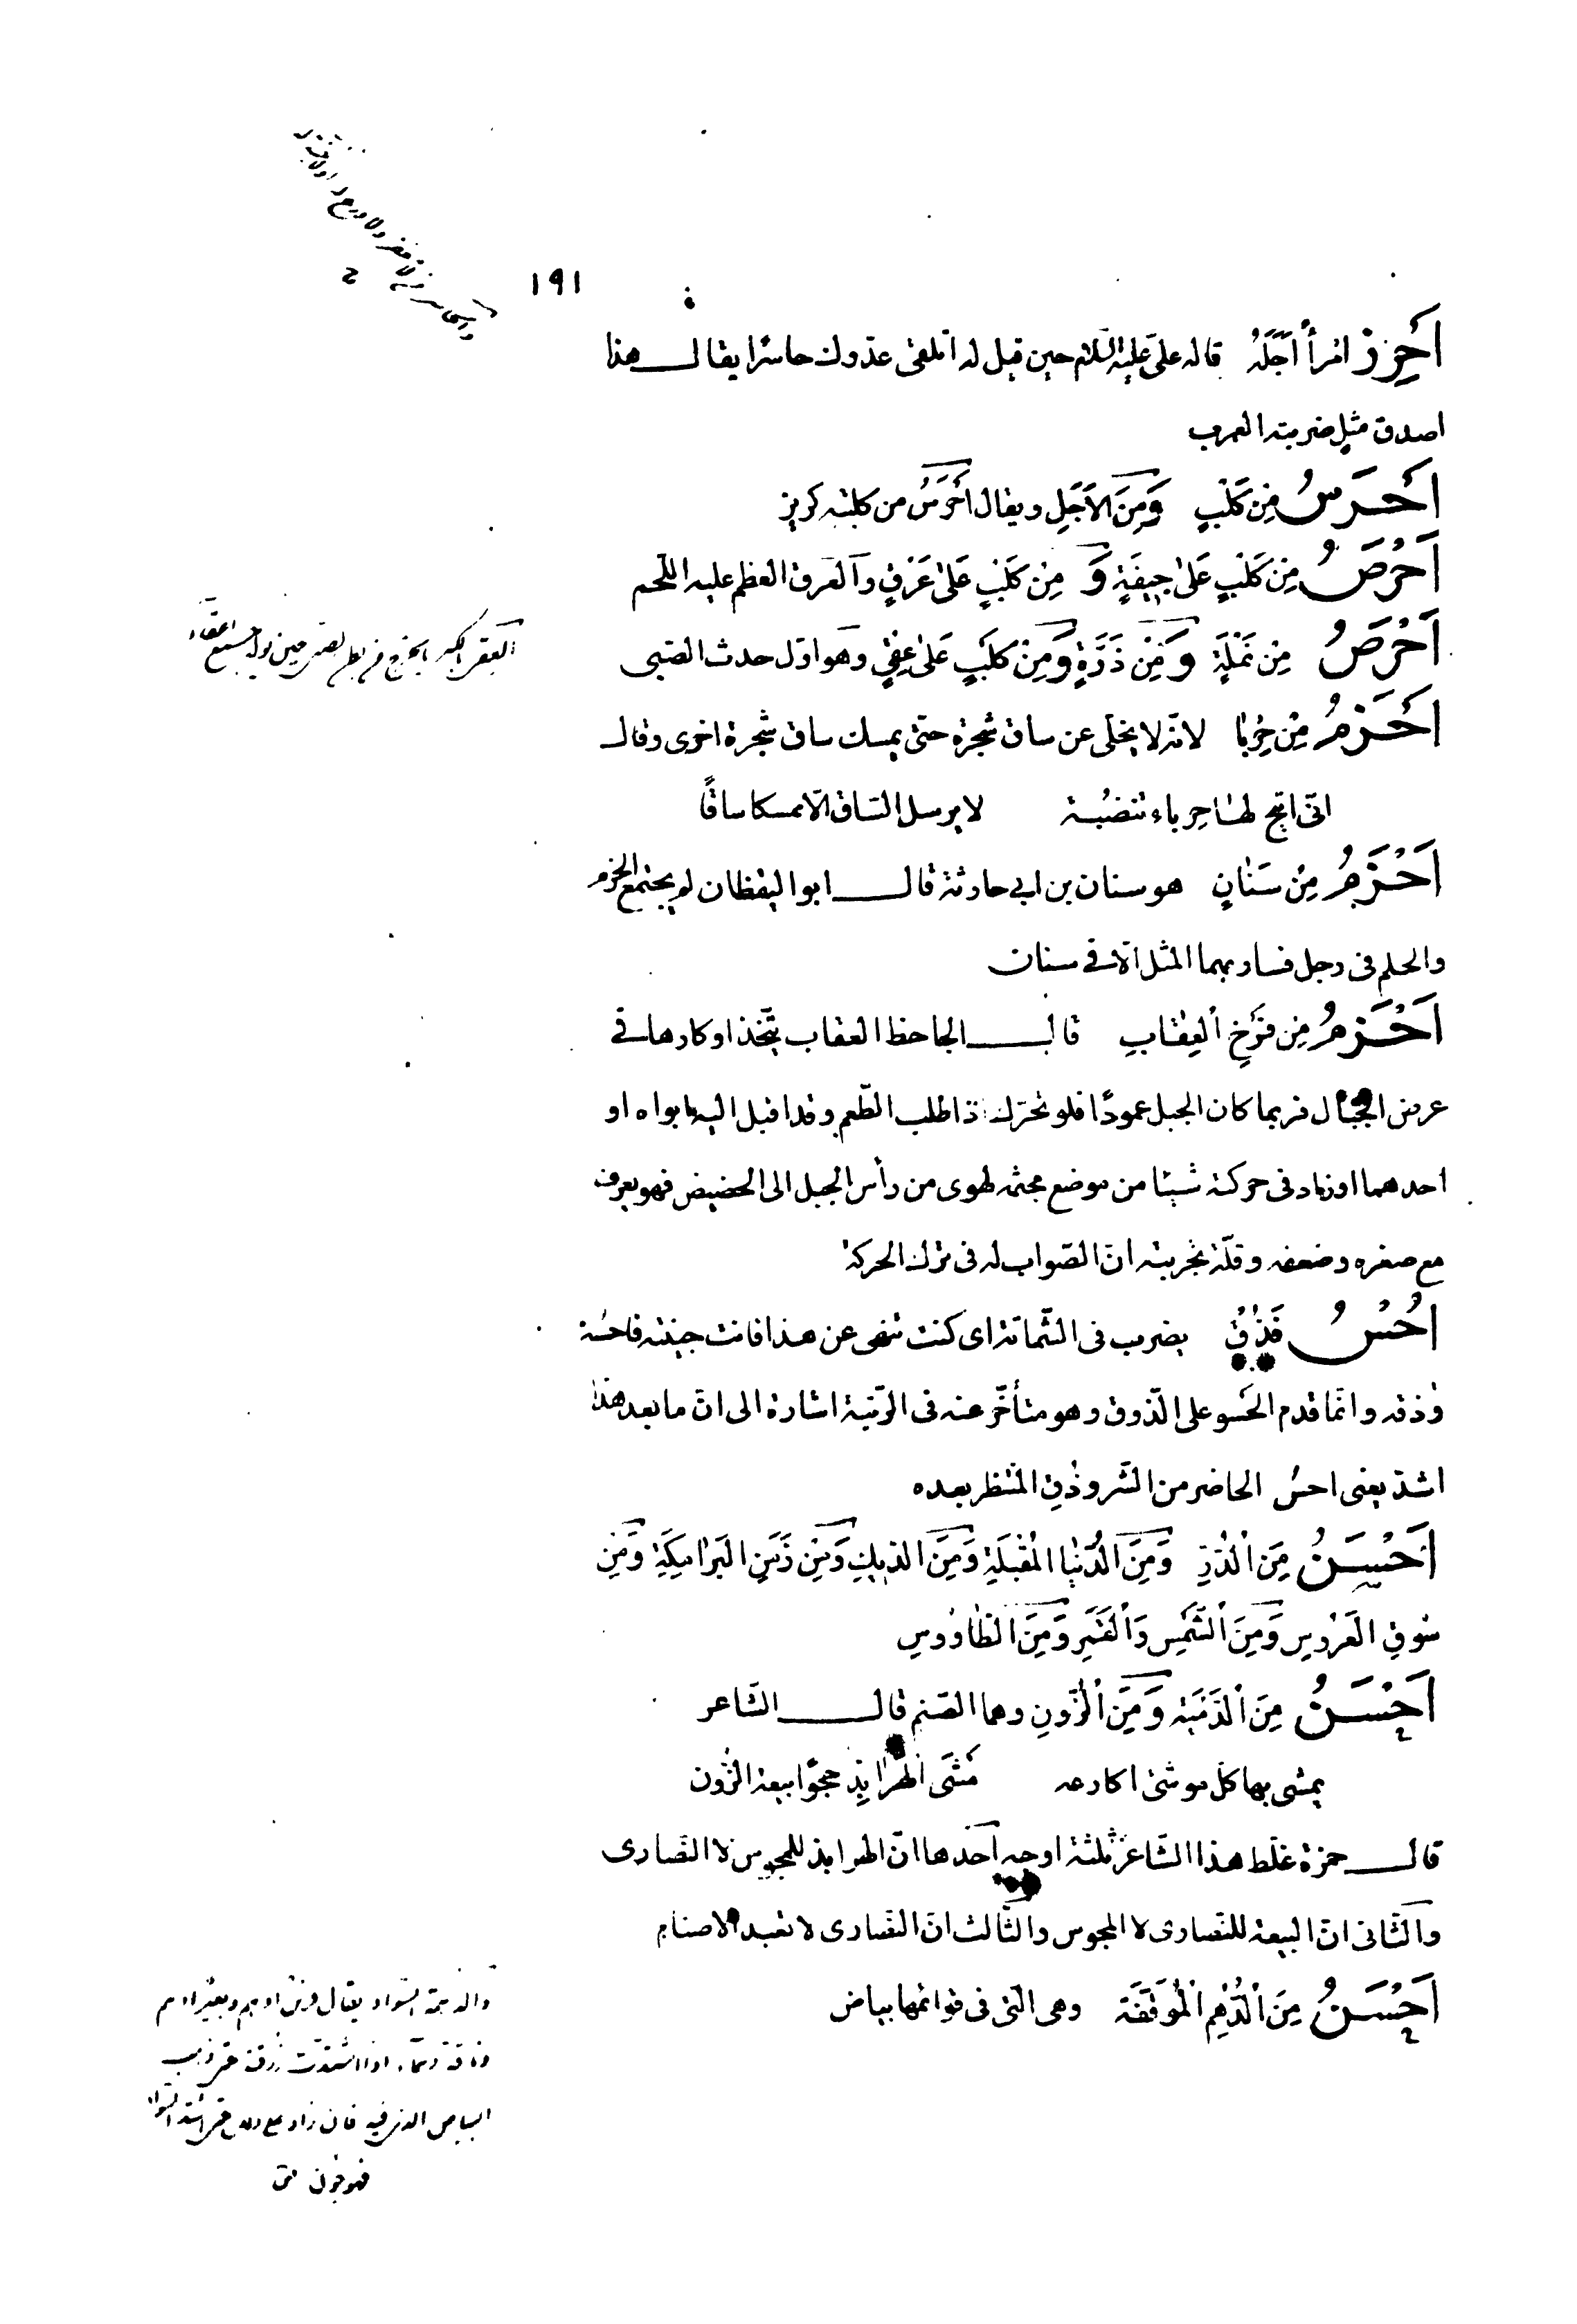 ١٩١
اَحْرَزَ امْرَأً اَجَلُهُ قاله علىّ عليه السّلام حين قيل له اتلقى عدوك حاسرًا يقال هذا
اصدق مثل ضربته العرب
اَحْرَسُ مِنْ كَلْبٍ وَمِنَ الاَجَلِ ويقال اَحْرَسُ من كلبة كريز
اَحْرَصُ مِنْ كَلْبٍ عَلىٰ جِيفَةٍ وَ مِنْ كَلْبٍ عَلىٰ عَرْقٍ وَالعرق العظم عليه اللّحم
اَحْرَصُ مِنْ نَمْلَةٍ وَمِنْ ذَرَّةٍ وَمِنْ كَلْبٍ عَلىٰ عِقْيٍ وهو اول حدث الصّبى
اَحْزَمُ مِنْ حِرْبٰا لانّه لا يخلّى عن ساق شجرة حتى يمسك ساق شجرة اخرى وقال
انّى اتيح لها حرباء تنضُبة لا يرسل السّاق الّا ممسكا ساقًا
اَحْزَمُ مِنْ سَنٰانٍ هو سنان بن ابى حارثة قال ابو اليقظان لم يجتمع الحزم
والحلم فى رجل فسار بهما المثل الّا فى سنان
اَحْزَمُ مِنْ فَرْخِ اْلعِقٰابِ قال الجاحظ العقاب يتّخذ اوكارها فى
عرض الجبال فربما كان الجبل عمودًا فلو تحرّك اذا طلب الطّعم وقد اقبل اليه ابواه او
احدهما او زاد فى حركته شيئا من موضع مجثمه لهوى من رأس الجبل الى الحضيض فهو يعرف
مع صغره وضعفه وقلّة تجربته انّ الصّواب له فى ترك الحركة
اُحْسُ فَذُقْ يضرب فى الشّماتة اى كنت تنهى عن هذا فانت جنيته فاحسه
وذقه وانّما قدم الحَسو على الذّوق وهو متأخّر عنه فى الرّتبة اشارة الى انّ ما بعد هذا
اشدّ يعنى احسُ الحاضر من الشّر وذُقِ المنتظر بعده
اَحْسَنُ مِنَ اْلنّٰارِ وَمِنَ الدُّنْيٰا المُقْبِلَةِ وَمِنَ الدّيكِ وَمِنْ زَمَنِ البَرٰامِكَةِ وَمِنْ
سُوقِ العَرُوسِ وَمِنَ اْلشَّمْسِ وَاْلقَمَرِ وَمِنَ الطّٰاوُوسِ
اَحْسَنُ مِنَ اْلدُّمْيَةِ وَمِنَ اْلزُّونِ وهما الصّنم قال الشّاعر
يمشى بها كلّ موشىّ اكارعه مَشْىَ الهَرٰابِذِ حجّوا بيعة الزّون
قال حمزة غلّط هذا الشّاعر ثلثة اوجه اَحدها انّ الهرابذ للمجوس لا النّصارى
والثّانى انّ البيعة للنّصارى لا المجوس والثّالث انّ النّصارى لا تعبد الاصنام
اَحْسَنُ مِنَ اْلدُّهْمِ اْلمُوَقَّفَةِ وهى الّتى فى قوائمها بياض
والدّهمة السّواد يقال فرس ادهم وبعير ادهم
وناقة دهماء اذا اشتدّت زرقته حتى ذهب
البياض الذى فيه فان زاد على ذلك حتى اشتد السّواد
فهو جون